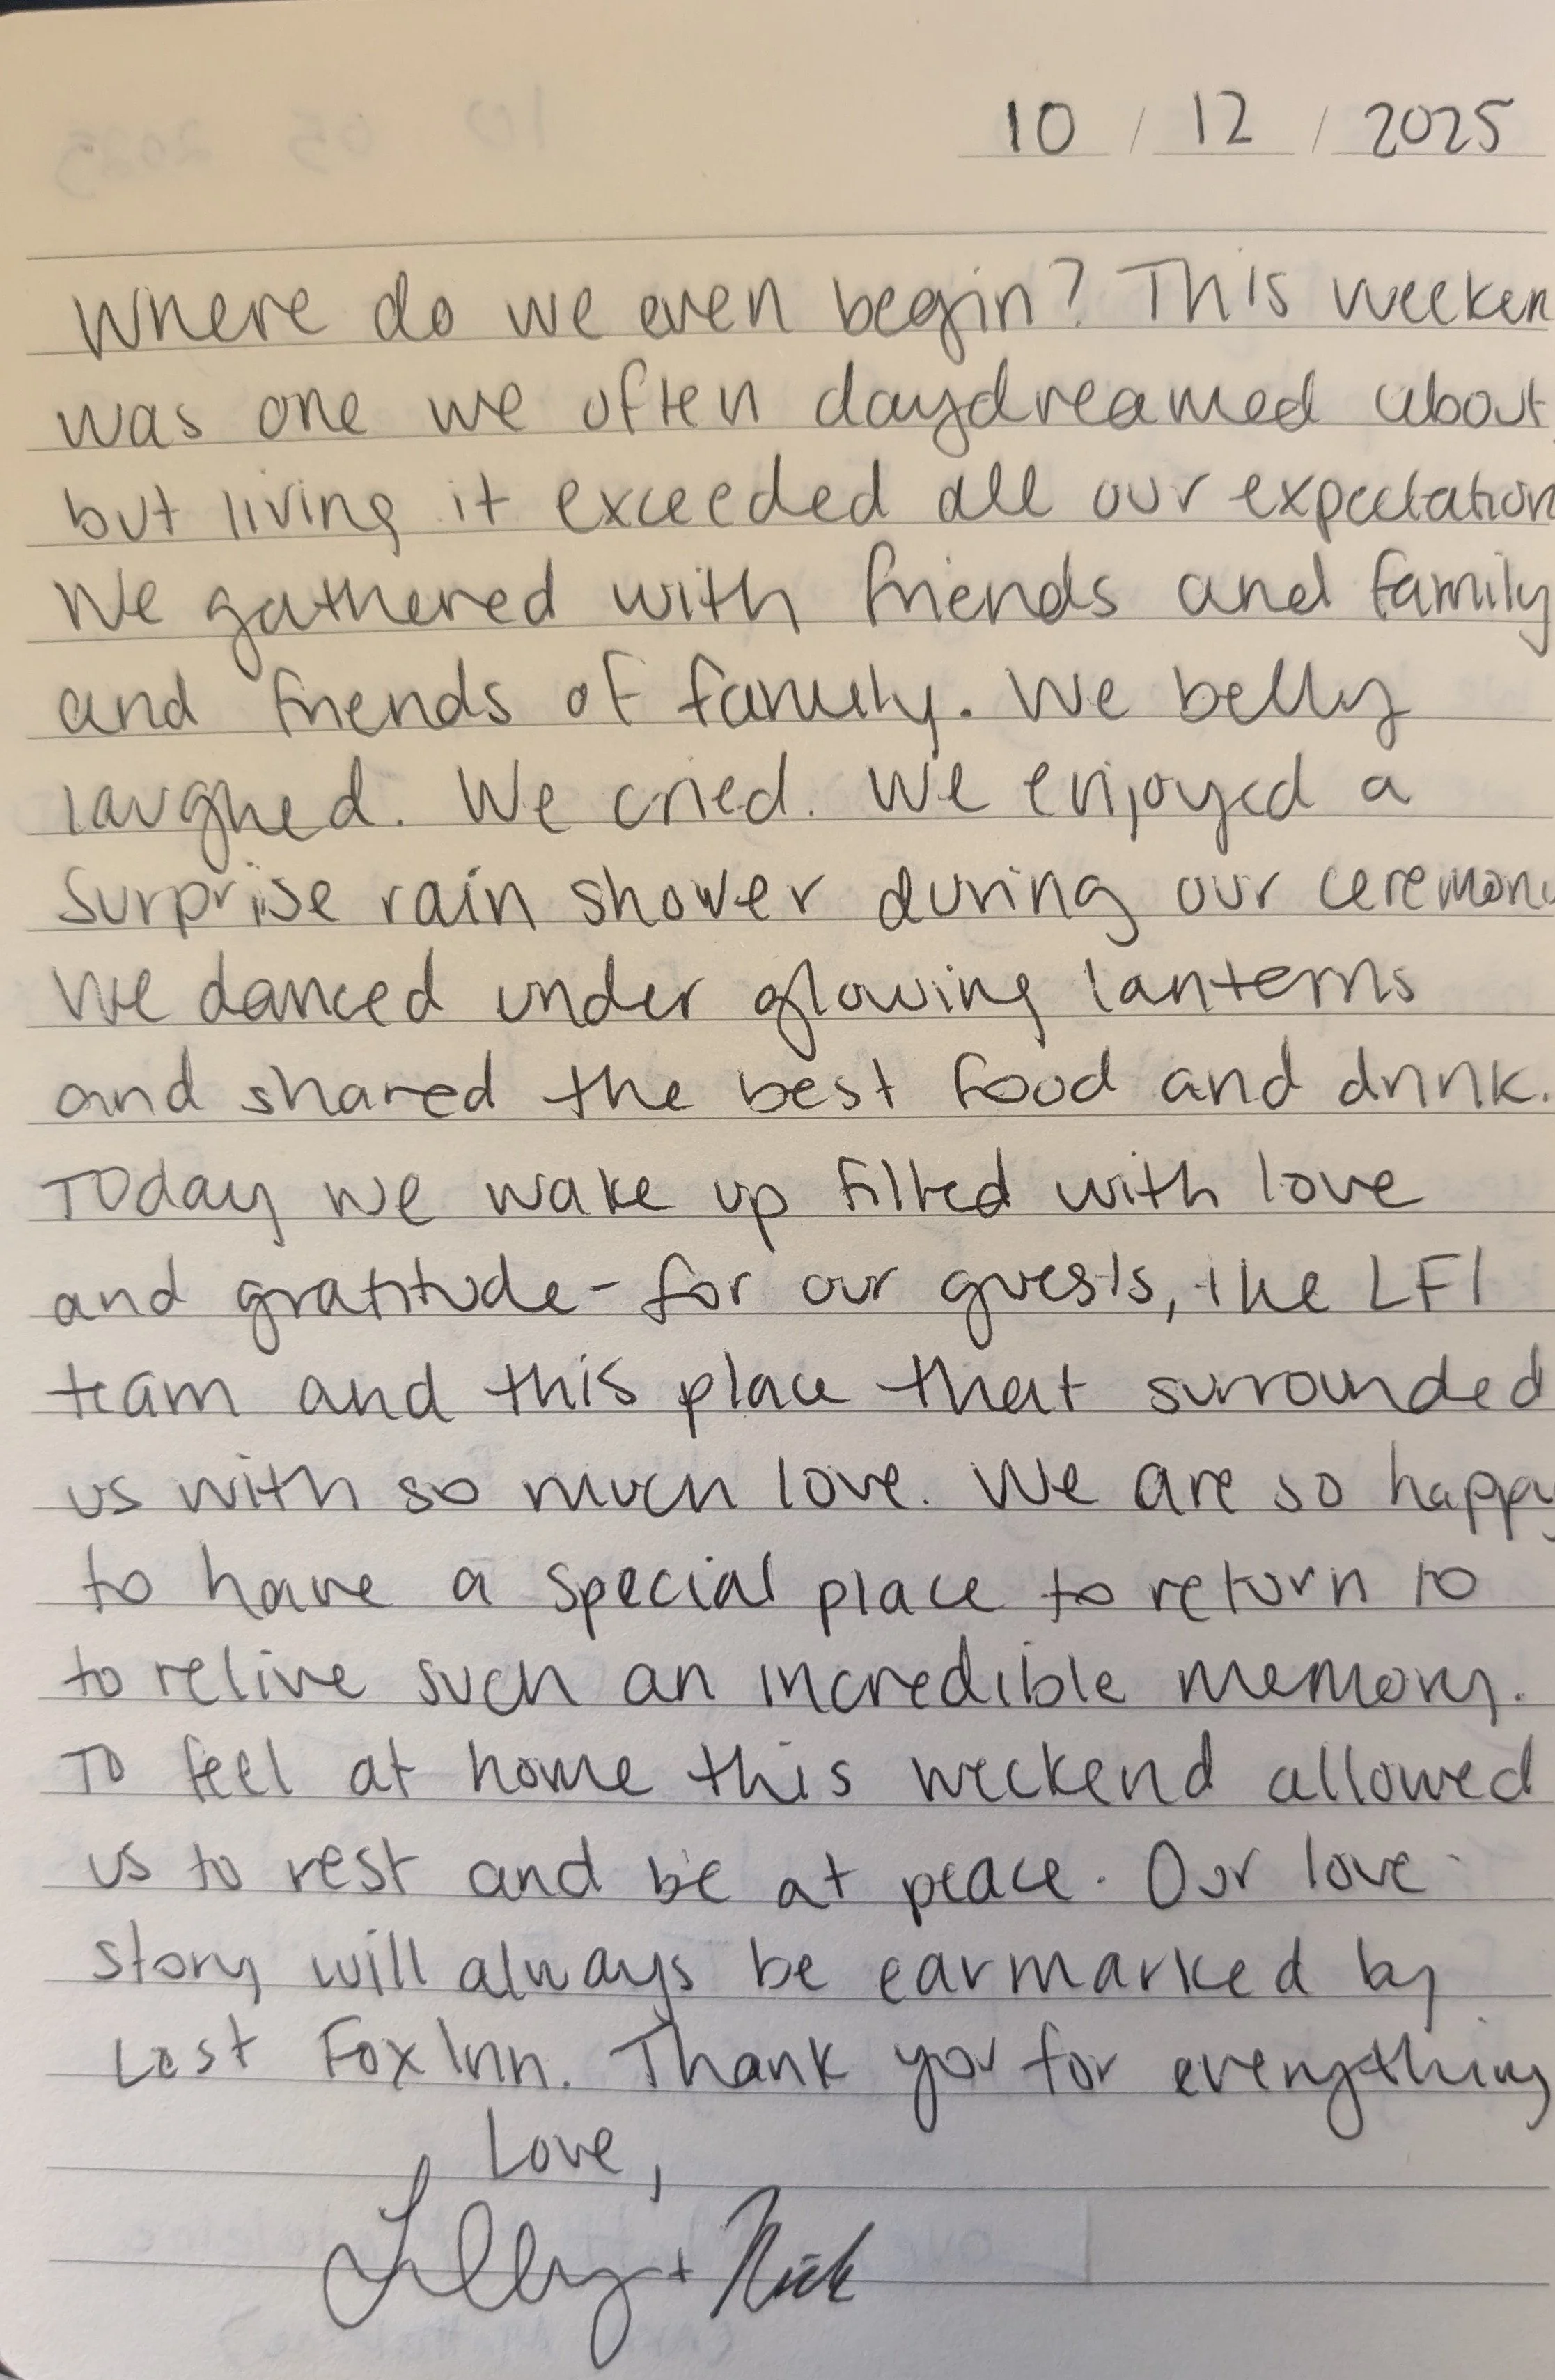 10 / 12 / 2025
Where do we even begin? This weeken
was one we often daydreamed about,
but living it exceeded all our expectation
We gathered with friends and family
and friends of family. We belly
laughed. We cried. We enjoyed a
surprise rain shower during our ceremony
We danced under glowing lanterns
and shared the best food and drink.
Today we wake up filled with love
and gratitude - for our guests, the LFI
team and this place that surrounded
us with so much love. We are so happy
to have a special place to return to
to relive such an incredible memory.
To feel at home this weekend allowed
us to rest and be at peace. Our love
story will always be earmarked by
Last Fox Inn. Thank you for everything
Love,
Lilly + Nick